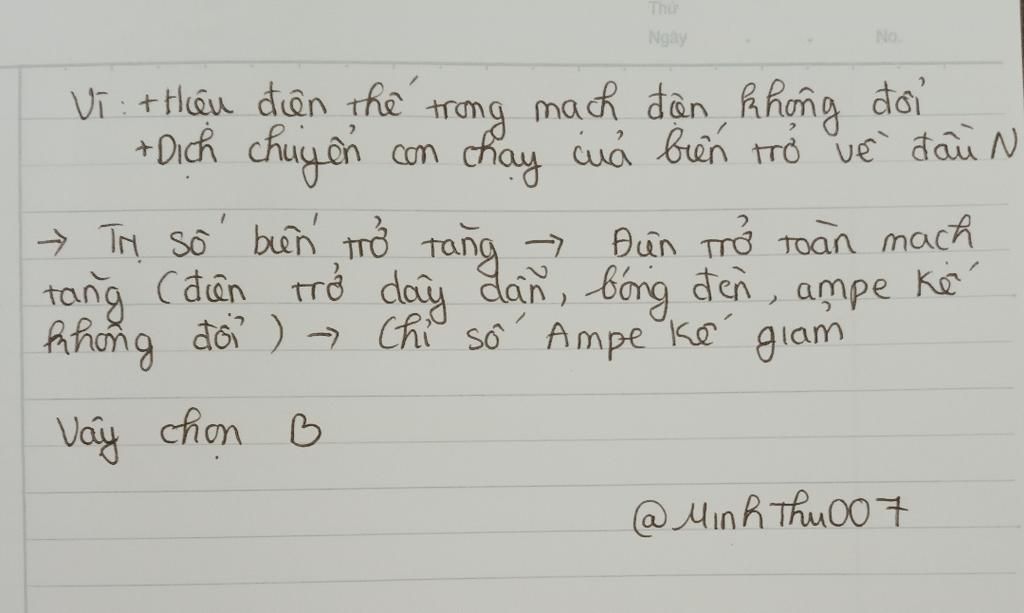 Thứ
Ngày . . No.
Vì: +Hiệu điện thế trong mạch điện không đổi
+Dịch chuyển con chạy của biến trở về đầu N
→ Trị số biến trở tăng → Điện trở toàn mạch
tăng (điện trở dây dẫn, bóng đèn, ampe kế
không đổi) → Chỉ số Ampe kế giảm
Vậy chọn B
@MinhThu007